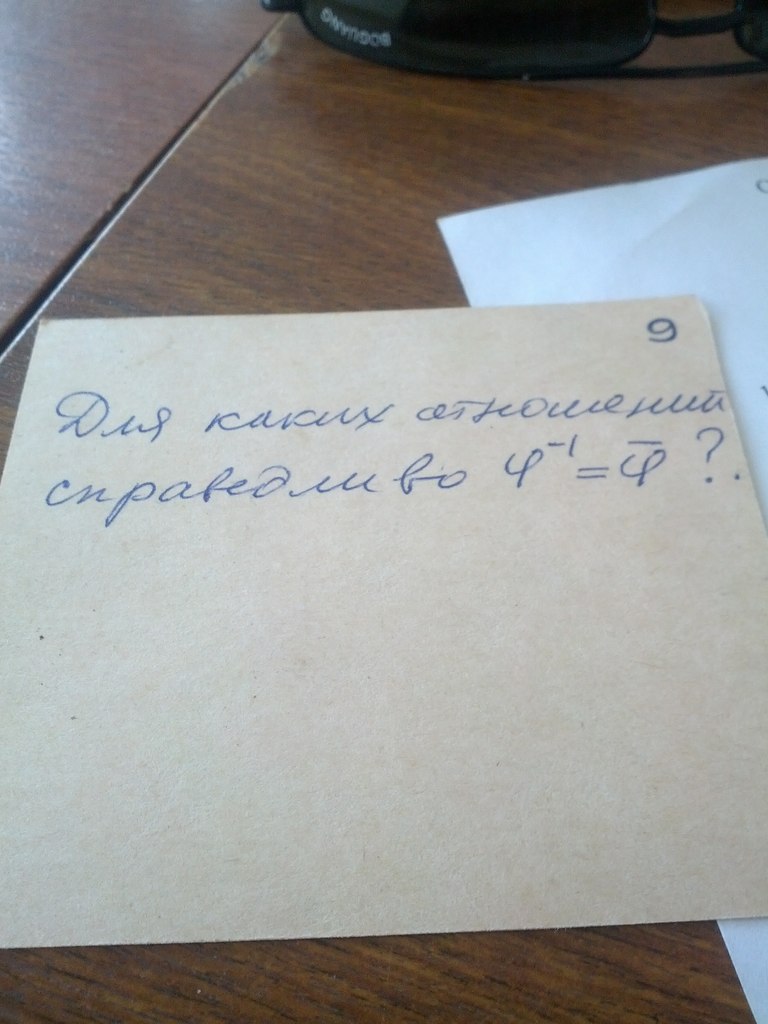 9
Для каких отношений
справедливо φ⁻¹ = φ̅ ?.